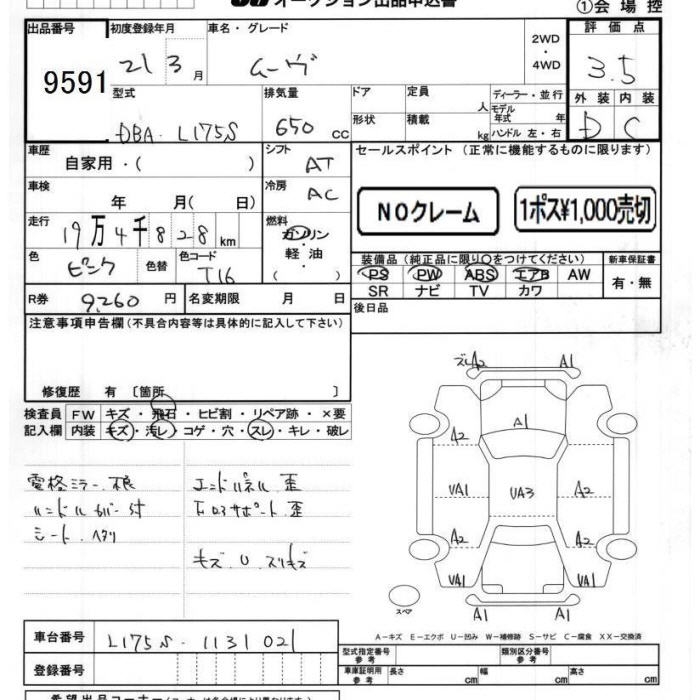 オークション出品申込書 ①会場控
出品番号 初度登録年月 車名・グレード 2WD・4WD 評価点
9591 21 3月 ムーヴ 3.5
型式 排気量 ドア 定員 人 ディーラー・並行 外装 内装
モデル年式 年
DBA-L175S 650 cc 形状 積載 kg ハンドル 左・右 D C
車歴 自家用・( ) シフト AT セールスポイント (正常に機能するものに限ります)
車検 年 月( 日) 冷房 AC NOクレーム 1ポス¥1,000売切
走行 19万4千828km 燃料 ガソリン・軽油・( )
色 ピンク 色替 色コード T16 装備品 (純正品に限り○をつけてください) 新車保証書
PS PW ABS エアB AW 有・無
SR ナビ TV カワ
R券 9,260円 名変期限 月 日 後日品
注意事項申告欄(不具合内容等は具体的に記入して下さい)
修復歴 有 〔箇所 〕
検査員 FW キズ・飛石・ヒビ割・リペア跡・×要
記入欄 内装 キズ・汚レ・コゲ・穴・スレ・キレ・破レ
電格ミラー不良 エンドパネル歪
ハンドルカバー付 下回りサポート歪
シートヘタリ
キズ.U.スリキズ
ズレA2 A1
A1
A2 A2
UA1 UA3 A2
A2 A2
UA1 UA1
A1 A1
スペア
A-キズ E-エクボ U-凹み W-補修跡 S-サビ C-腐食 XX-交換済
車台番号 L175S-1131021
型式指定番号 参考 類別区分番号 参考
登録番号 車庫証明用 参考 長さ cm 幅 cm 高さ cm
希望出品コーナー